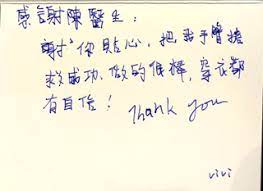 感謝陳醫生:
謝謝你貼心,把我手臂搶
救成功,做的很棒,穿衣都
有自信! Thank you
vivi